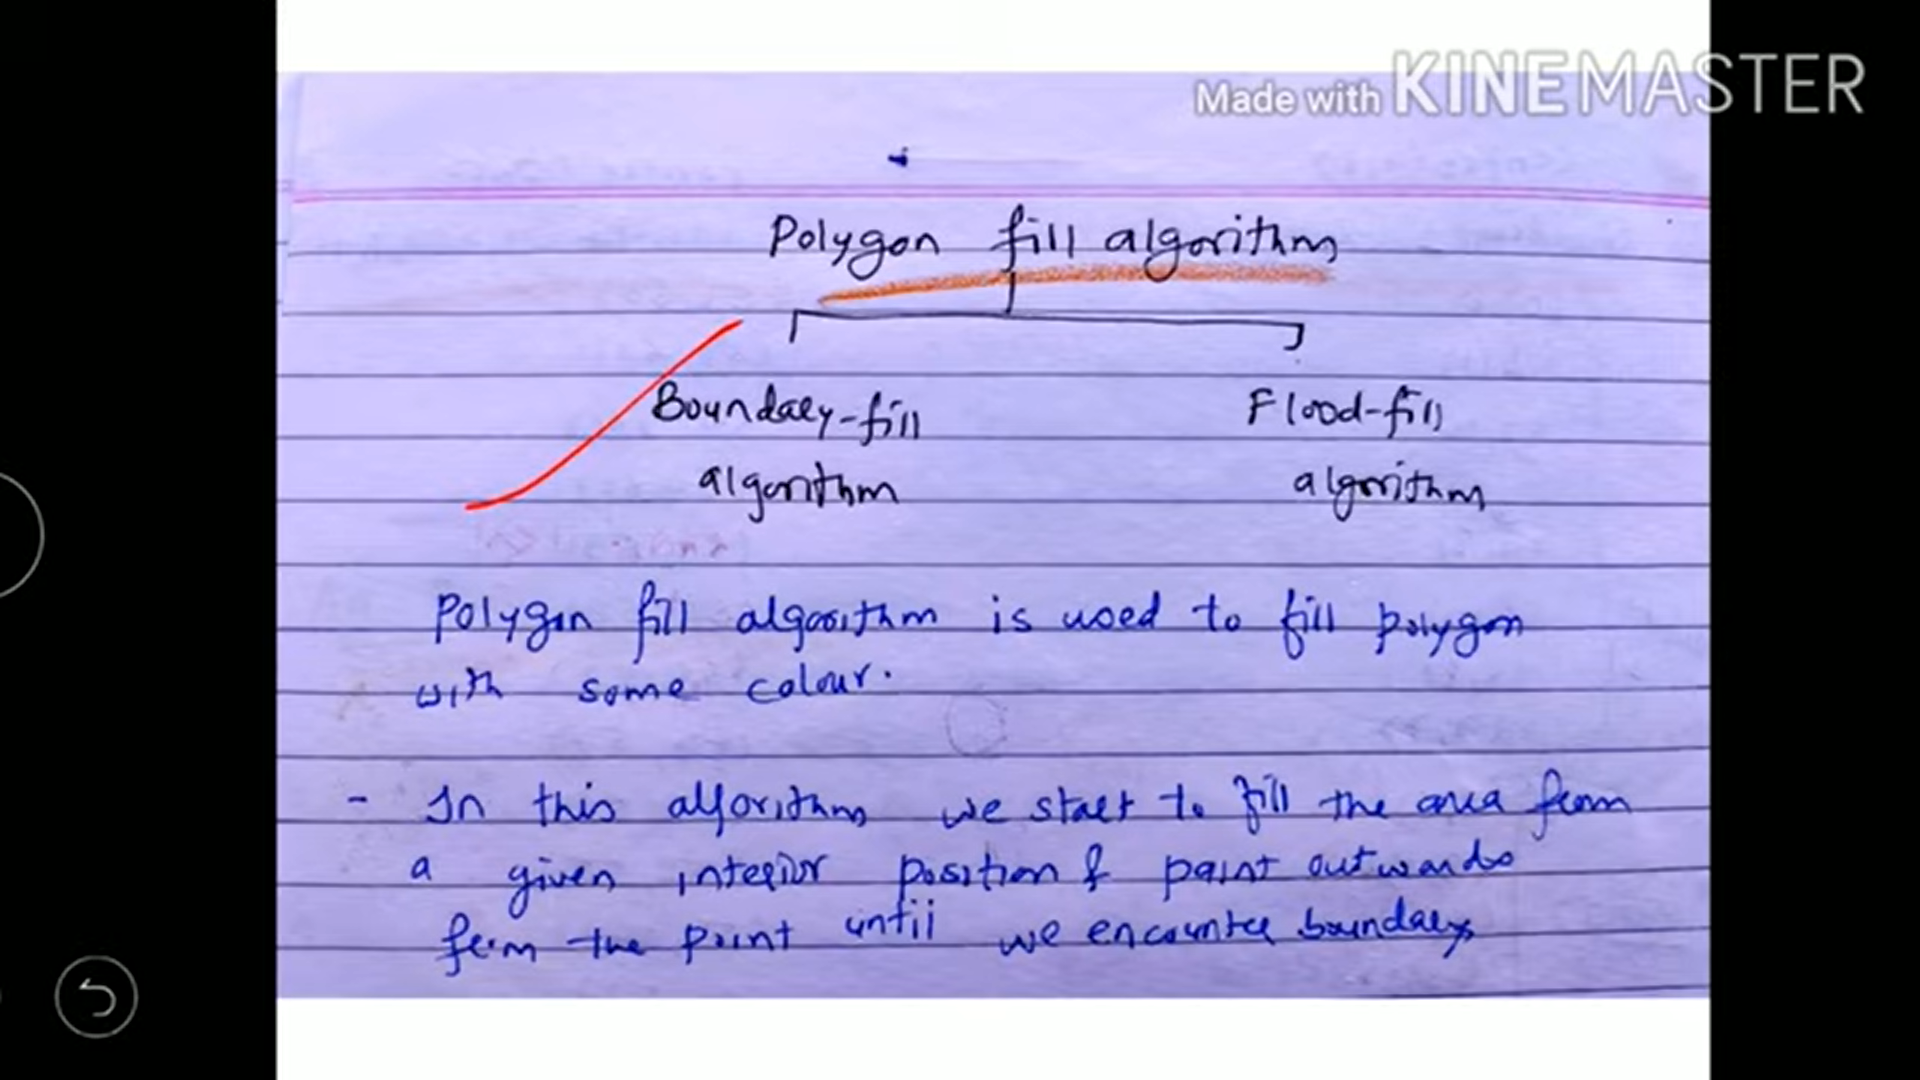 Made with KINEMASTER
Polygon fill algorithm
Boundary-fill Flood-fill
algorithm algorithm
Polygon fill algorithm is used to fill polygon
with some colour.
- In this algorithm we start to fill the area from
a given interior position & paint outwards
from the point until we encounter boundary